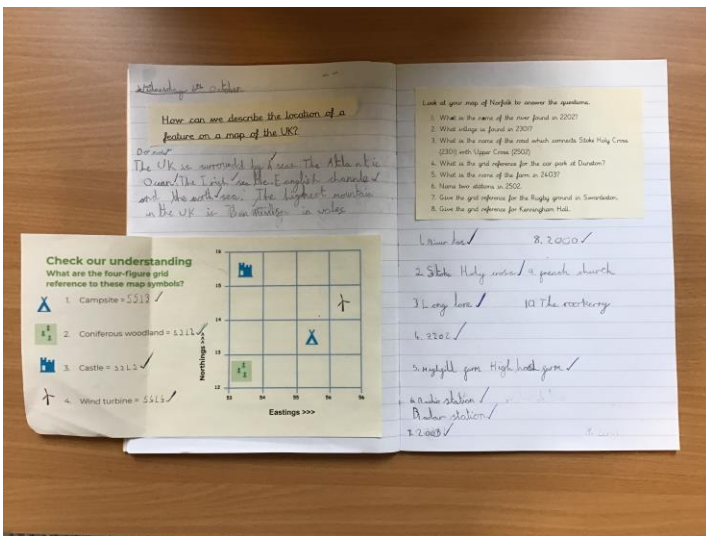 Wednesday 6th October
How can we describe the location of a
feature on a map of the UK?
The UK is surround by 4 seas. The Atlantic
Ocean. The Irish sea the English channel
and the north sea. The highest mountain
in the UK is Ben in wales
Check our understanding
What are the four-figure grid
reference to these map symbols?
1. Campsite = 5513
2. Coniferous woodland = 5212
3. Castle =
4. Wind turbine =
Northings >>>
16
15
14
13
12
53
54
55
56
Eastings >>>
Look at your map of Norfolk to answer the questions.
1. What is the name of the river found in 2202?
2. What village is found in 2301?
3. What is the name of the road which connects Stoke Holy Cross
(2301) with Upper Cross (2502)
4. What is the grid reference for the car park at Dunston?
5. What is the name of the farm in 2603?
6. Name two stations in 2502.
7. Give the grid reference for the Rugby ground in Swardeston.
8. Give the grid reference for Kenningham Hall.
1. River
8. 2000
2. Stoke Holy cross
9 french church
3 Long lane
10 The rookerry
4. 2202
5. farm High farm
6. Radio station
station
7. 2003